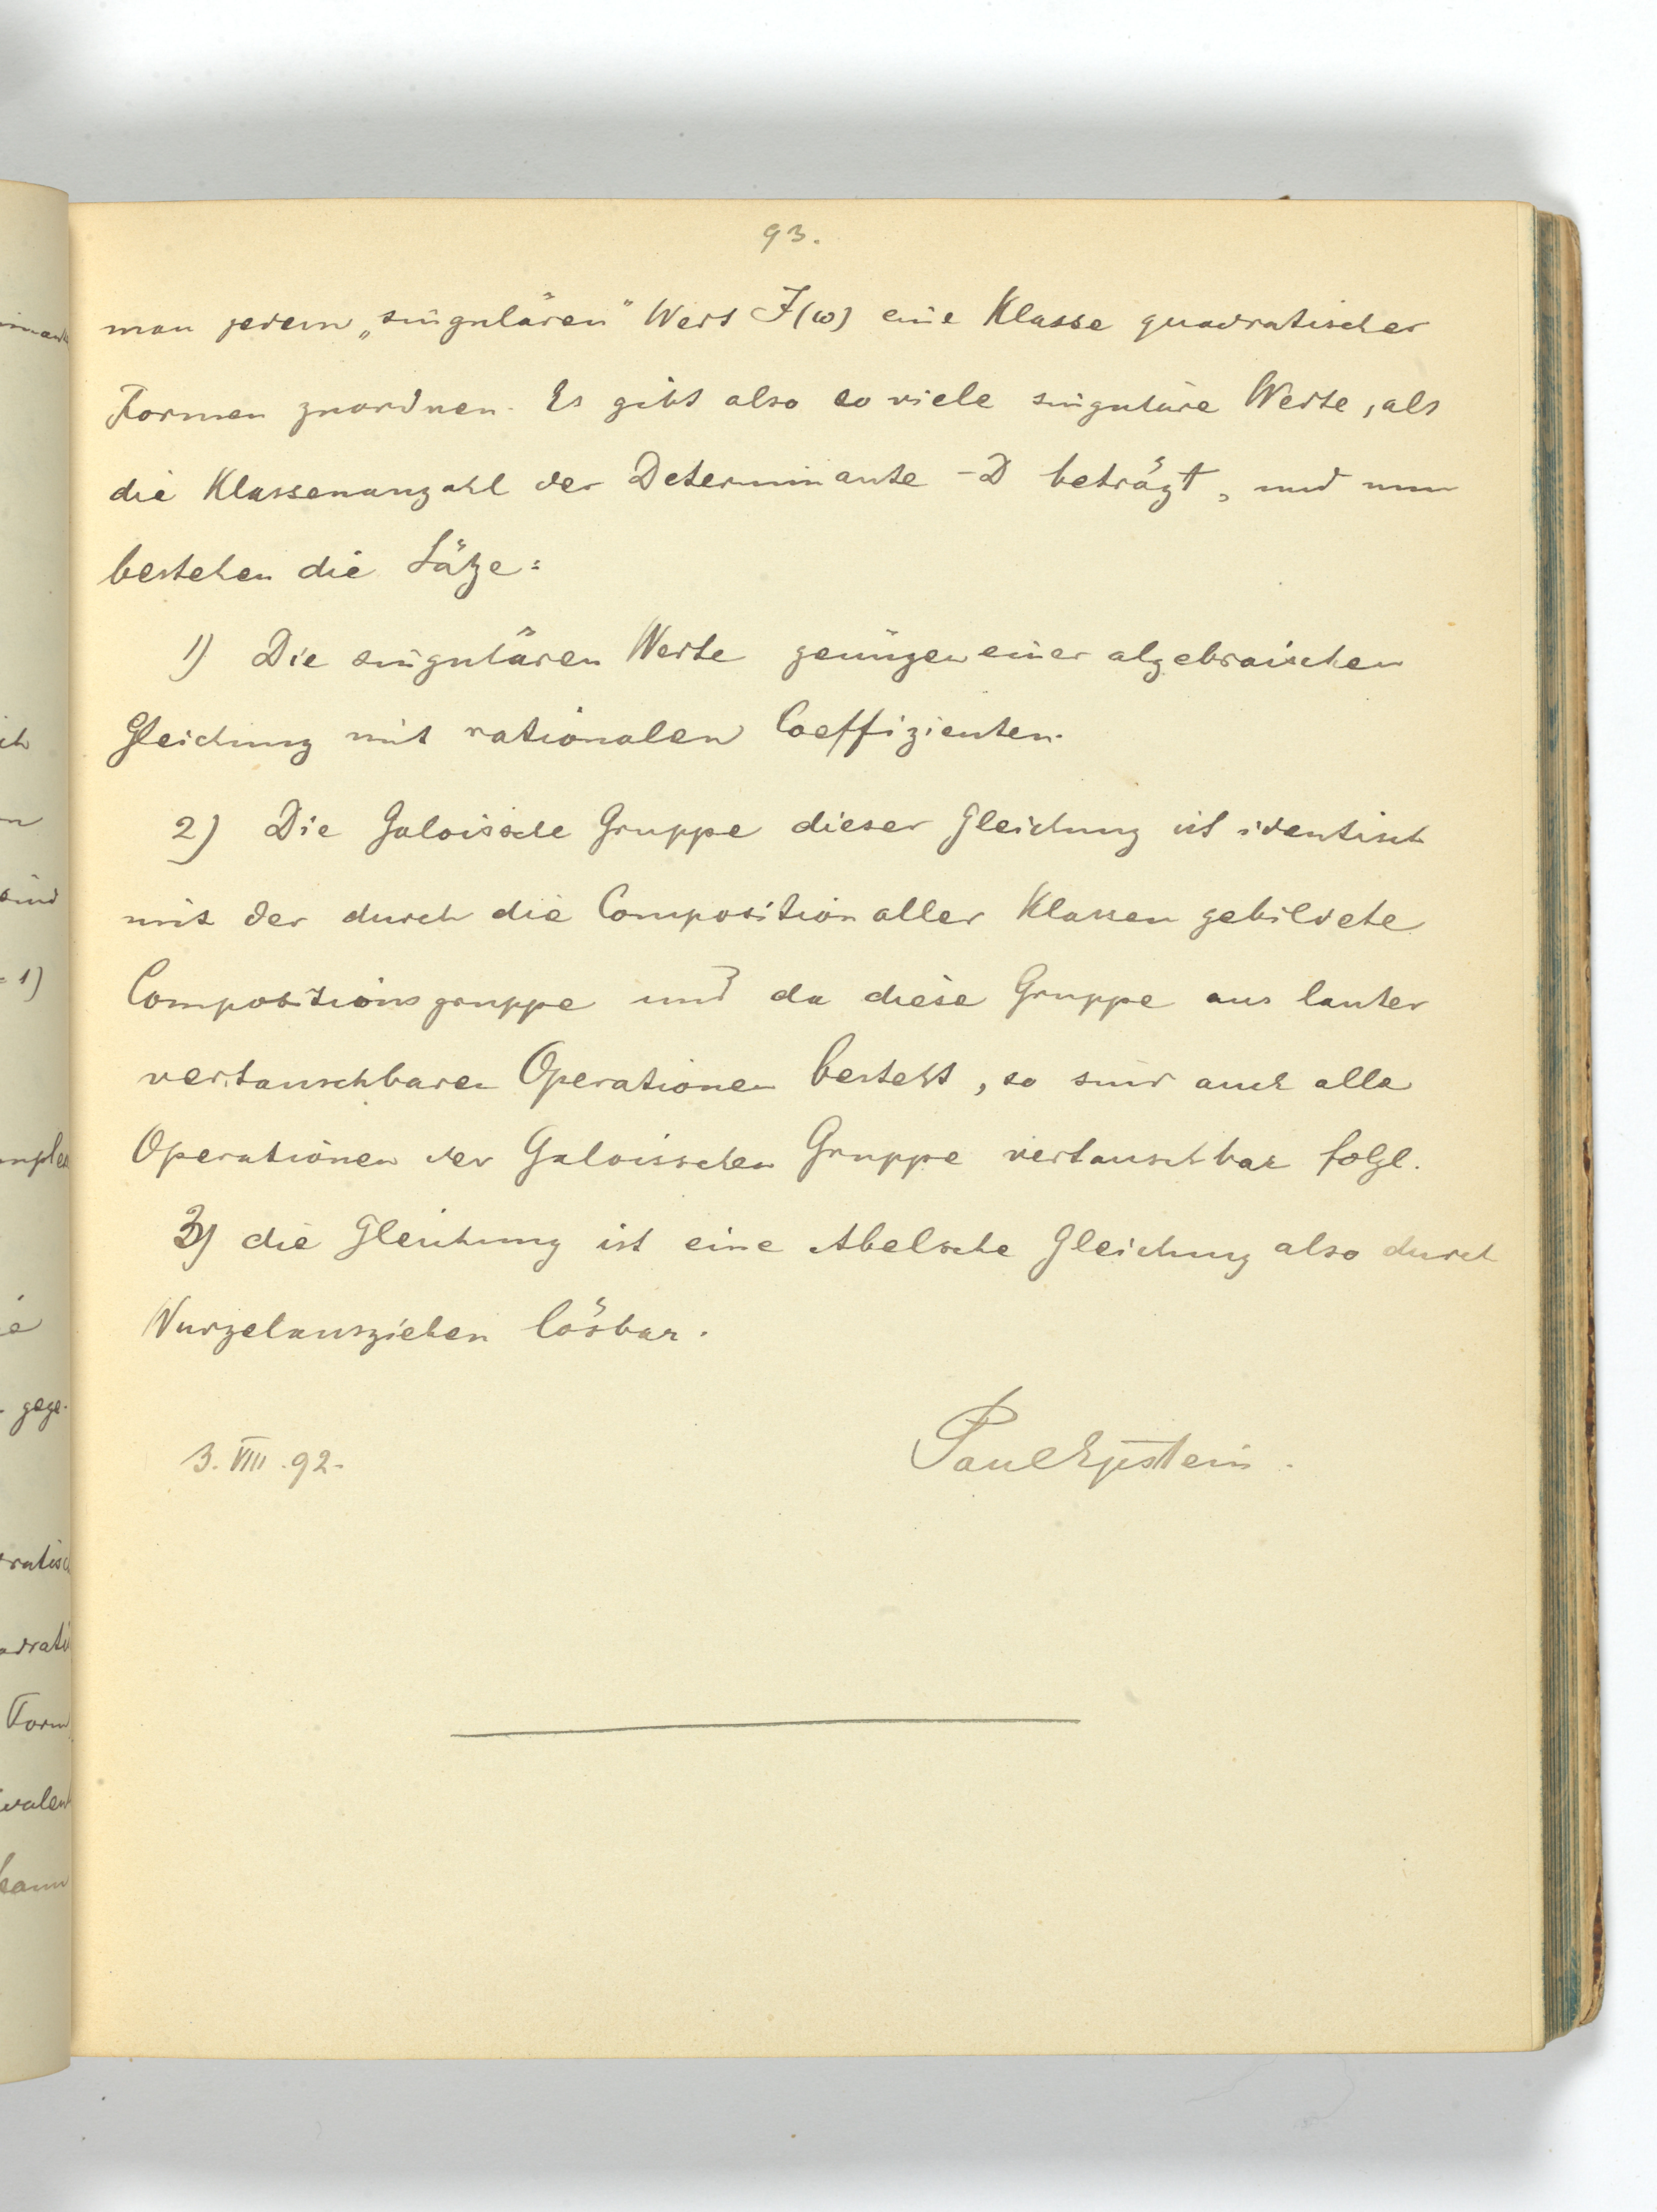 93.
man jedem „singulären" Wert J(ω) eine Klasse quadratischer
Formen zuordnen. Es gibt also so viele singuläre Werte, als
die Klassenanzahl der Determinante -D beträgt, und nun
bestehen die Sätze:
1) Die singulären Werte genügen einer algebraischen
Gleichung mit rationalen Coeffizienten.
2) Die Galoissche Gruppe dieser Gleichung ist identisch
mit der durch die Composition aller Klassen gebildete
Compositionsgruppe und da diese Gruppe aus lauter
vertauschbaren Operationen besteht, so sind auch alle
Operationen der Galoisschen Gruppe vertauschbar folgl.
3) die Gleichung ist eine Abelsche Gleichung also durch
Wurzelausziehen lösbar.
3. VIII. 92.
Paul Epstein.
ich
n
sind
= 1)
gege-
Form
kann